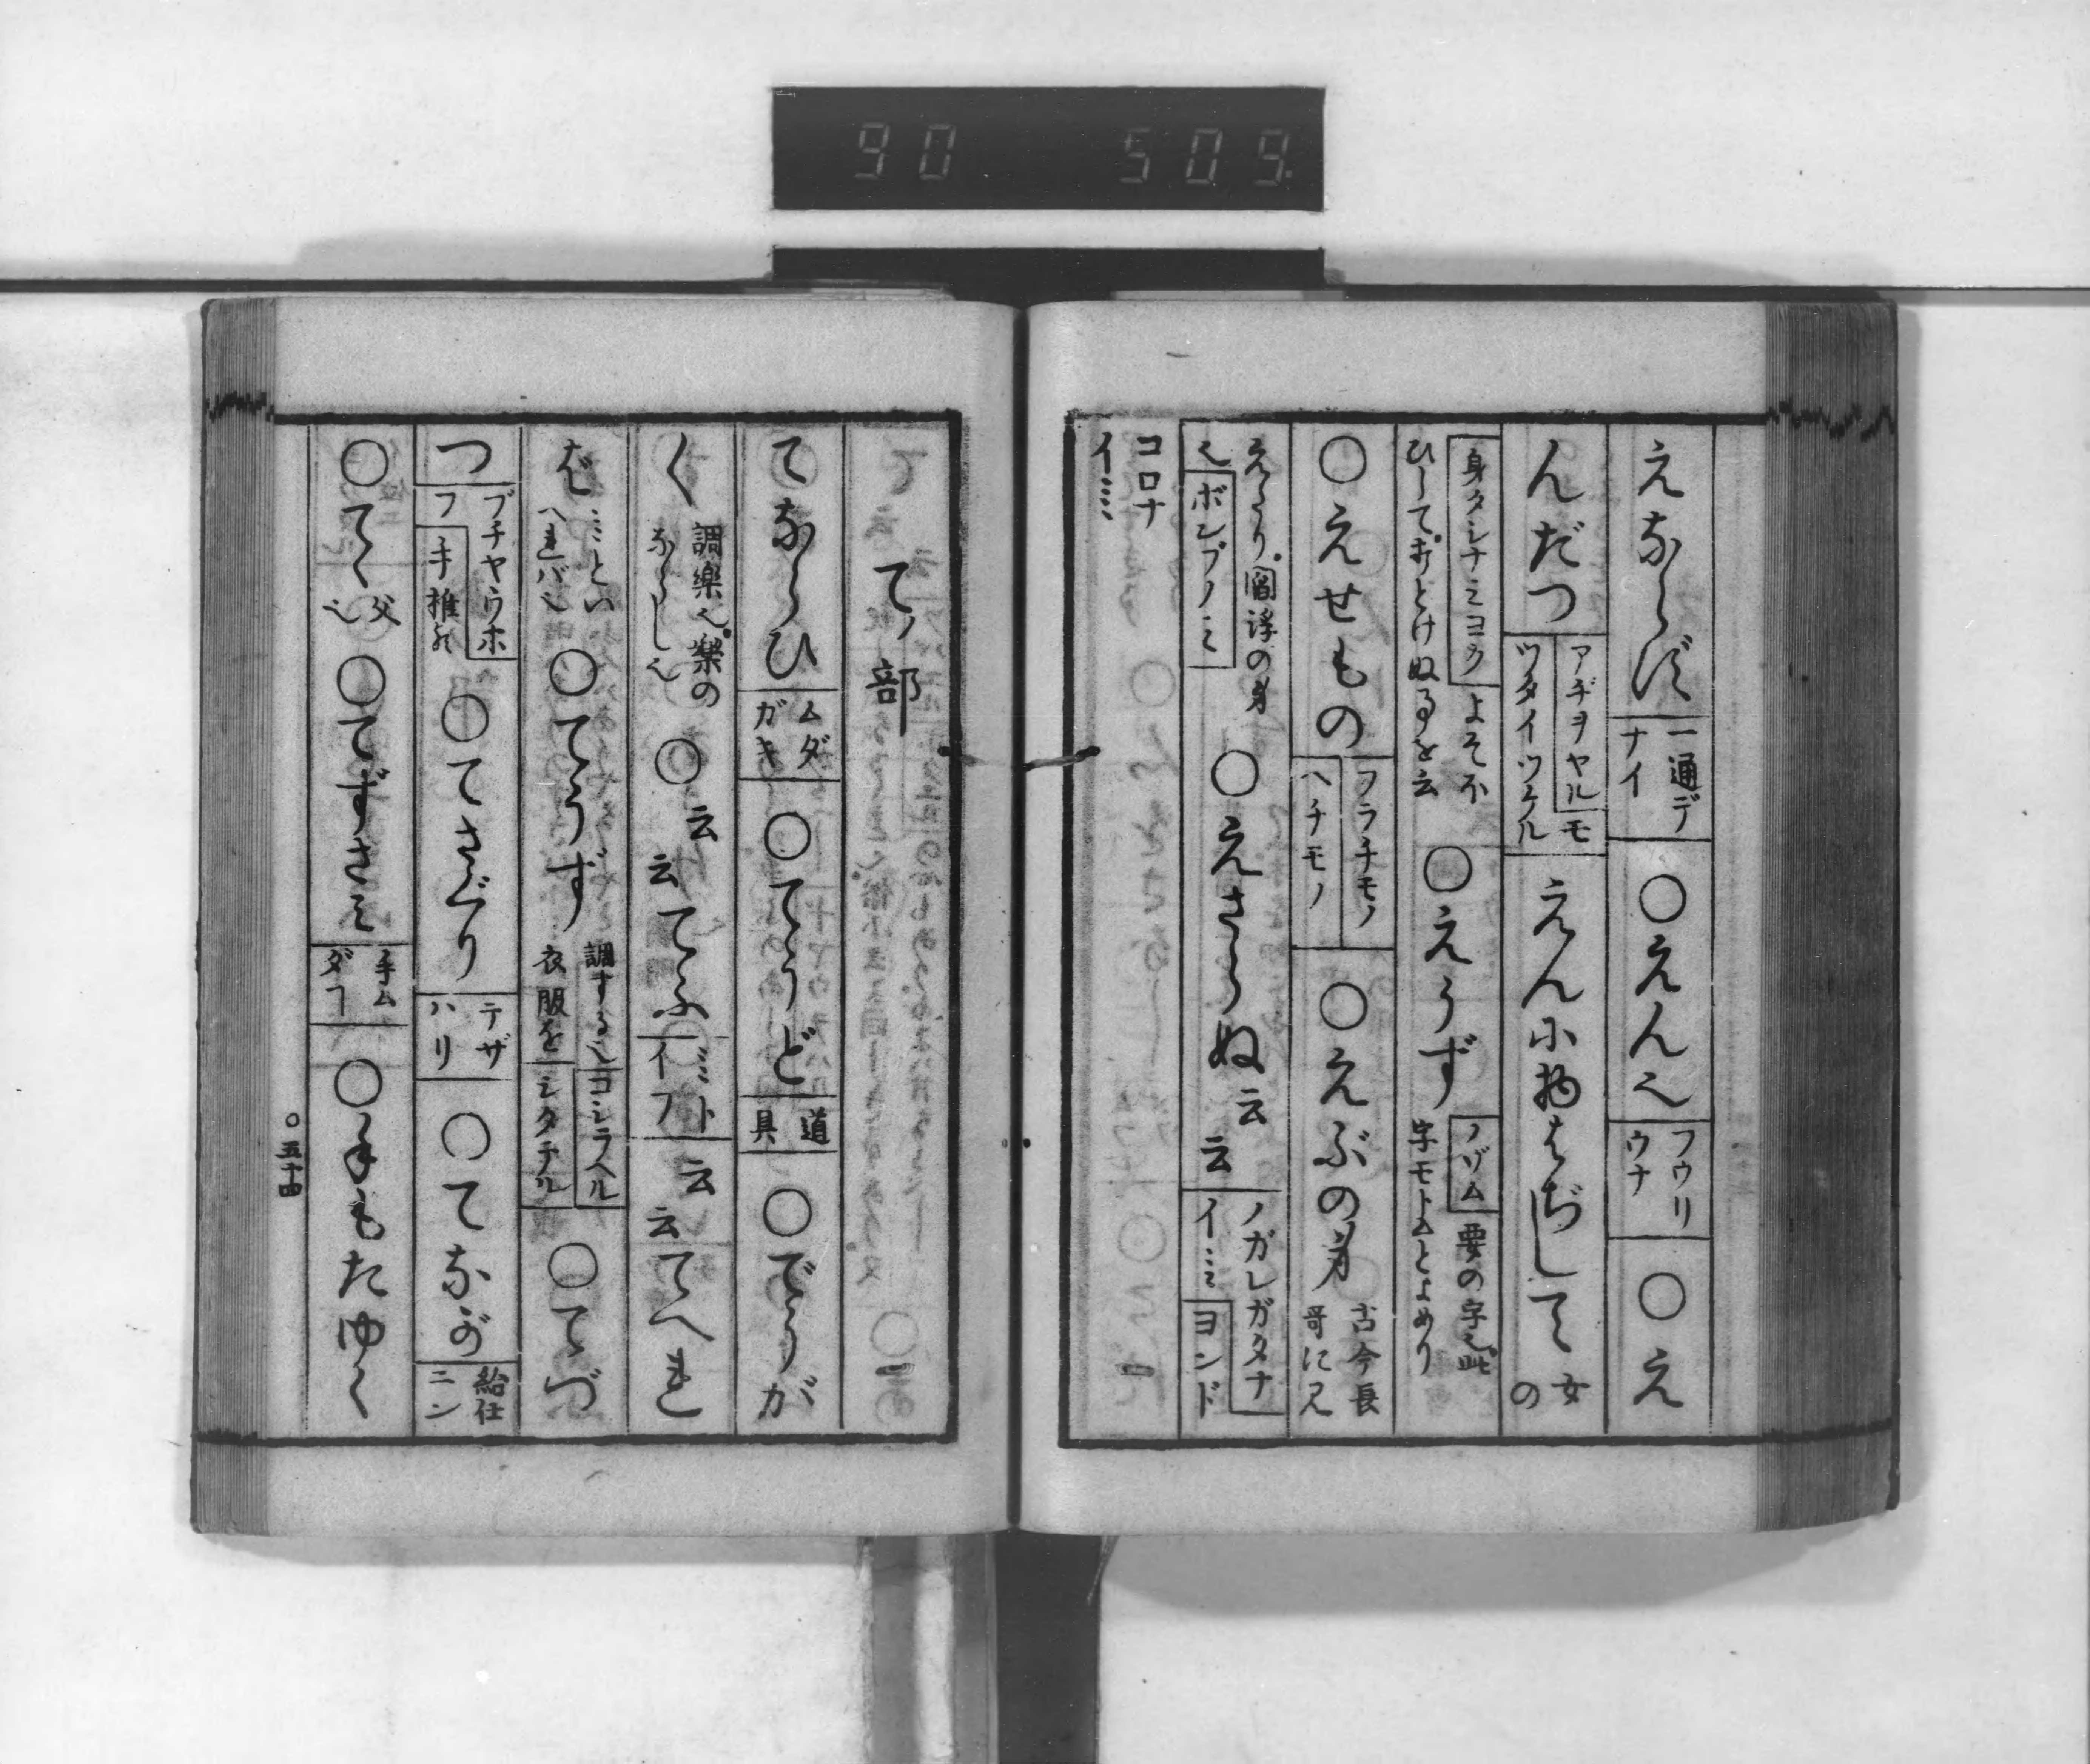 90 509.
えならず 一通デナイ ○えんへ フウリウナ ○え
んだつ アヂヲヤルモツタイツケル えん小物はぢして 女の
身タシナミヨク よそ不
ひしておとけぬるを云 ○えうず ノゾム 要の字也此字モトムとよめり
○えせもの フラチモノ ヘチモノ ○えぶの身 古今長哥に見
えたり。閻浮の身也 ボンブノミ ○えさらぬ云云 ノガレガタナイミ ヨンド
コロナイミ
て ノ 部
てならひ ムダガキ ○てうど 道具 ○でうが
く 調樂也。樂のならし也 ○云云てふ ミトイフ 云云てへれ
ば ミといへればへ也 ○てうず 調ずる也 コシラヘル 衣服を シタテル ○てづ
つ ブチヤウホフ 手推 ○てさぐり テザハリ ○てなが 給仕ニン
○てゝ 父也 ○てずさみ 手ムダ ○手もたゆく
○五十四